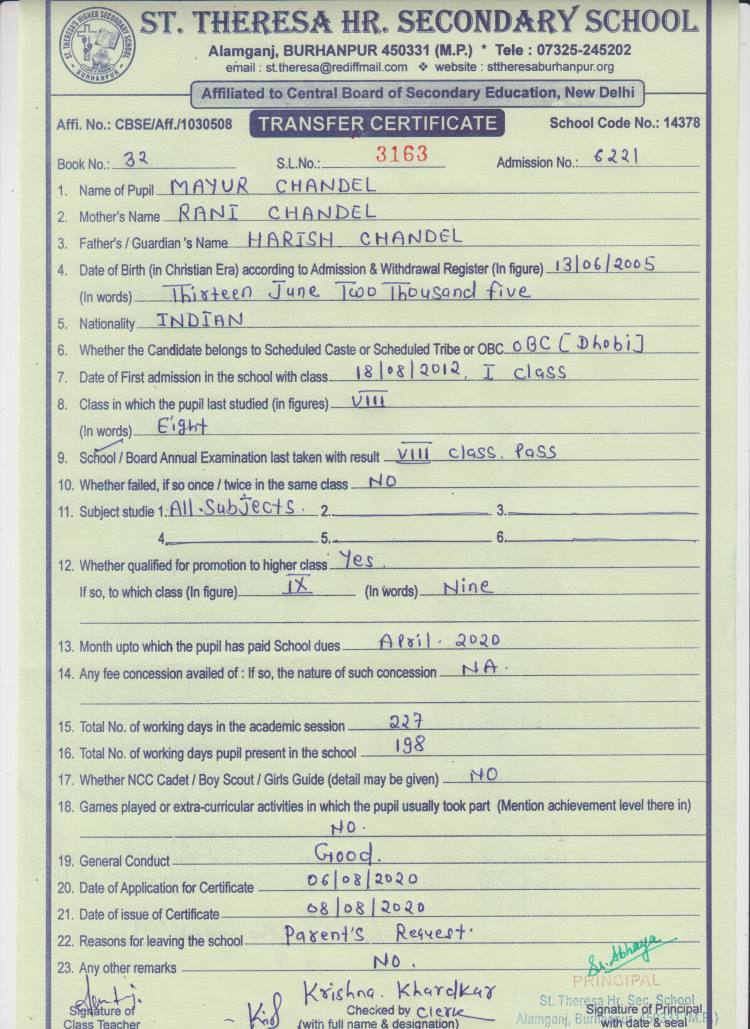 ST. THERESA'S HIGHER SECONDARY SCHOOL
BURHANPUR
ST. THERESA HR. SECONDARY SCHOOL
Alamganj, BURHANPUR 450331 (M.P.) * Tele : 07325-245202
email : st.theresa@rediffmail.com ❖ website : sttheresaburhanpur.org
Affiliated to Central Board of Secondary Education, New Delhi
Affi. No.: CBSE/Aff./1030508 TRANSFER CERTIFICATE School Code No.: 14378
Book No.: 32 S.L.No.: 3163 Admission No.: 6221
1. Name of Pupil MAYUR CHANDEL
2. Mother's Name RANI CHANDEL
3. Father's / Guardian 's Name HARISH CHANDEL
4. Date of Birth (in Christian Era) according to Admission & Withdrawal Register (In figure) 13/06/2005
(In words) Thirteen June Two Thousand five
5. Nationality INDIAN
6. Whether the Candidate belongs to Scheduled Caste or Scheduled Tribe or OBC OBC [Dhobi]
7. Date of First admission in the school with class 18/08/2012, I class
8. Class in which the pupil last studied (in figures) VIII
(In words) Eight
9. School / Board Annual Examination last taken with result VIII class. Pass
10. Whether failed, if so once / twice in the same class NO
11. Subject studie 1. All Subjects. 2. 3.
4. 5. 6.
12. Whether qualified for promotion to higher class Yes.
If so, to which class (In figure) IX (In words) Nine
13. Month upto which the pupil has paid School dues April. 2020
14. Any fee concession availed of : If so, the nature of such concession NA.
15. Total No. of working days in the academic session 227
16. Total No. of working days pupil present in the school 198
17. Whether NCC Cadet / Boy Scout / Girls Guide (detail may be given) NO
18. Games played or extra-curricular activities in which the pupil usually took part (Mention achievement level there in)
NO.
19. General Conduct Good.
20. Date of Application for Certificate 06/08/2020
21. Date of issue of Certificate 08/08/2020
22. Reasons for leaving the school Parent's Request.
23. Any other remarks NO.
Sr. Abhaya
PRINCIPAL
Krishna. Khardkar
St. Theresa Hr. Sec. School
Signature of Checked by Clerk Signature of Principal
Alamganj, Burhanpur, 450331 (M.P.)
Class Teacher (with full name & designation) with date & seal